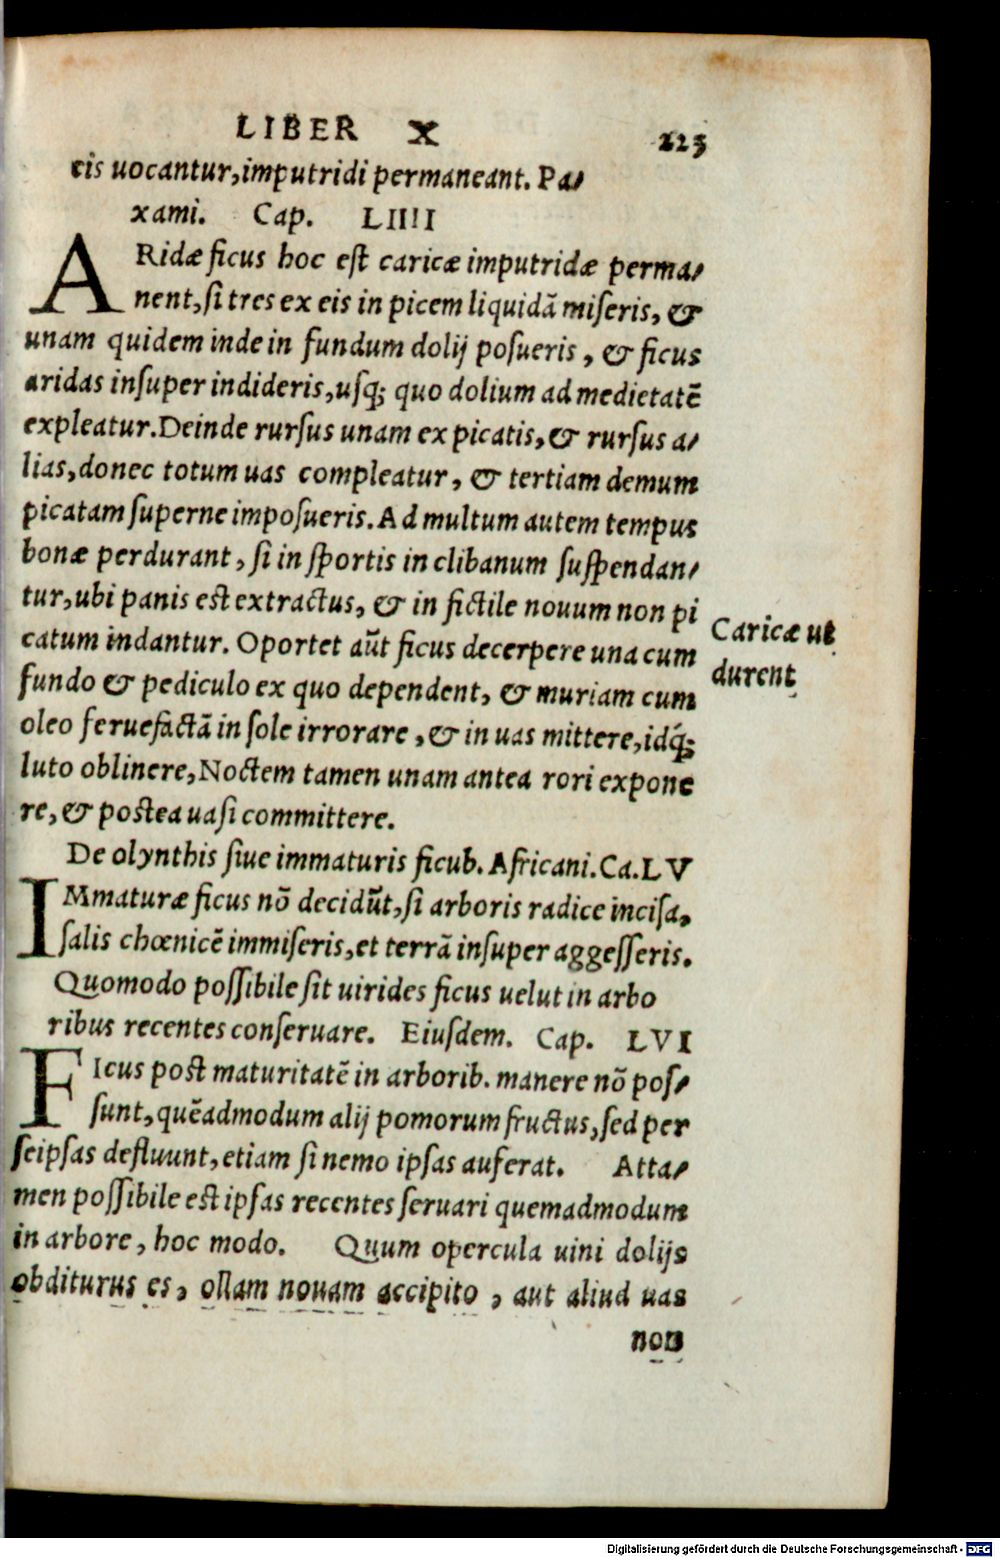 LIBER X 223
cis uocantur, imputridi permaneant. Pa-
xami. Cap. LIIII
ARidæ ficus hoc est caricæ imputridæ perma-
nent, si tres ex eis in picem liquidã miseris, &
unam quidem inde in fundum dolij posueris, & ficus
aridas insuper indideris, usq; quo dolium ad medietatẽ
expleatur. Deinde rursus unam ex picatis, & rursus a-
lias, donec totum uas compleatur, & tertiam demum
picatam superne imposueris. Ad multum autem tempus
bonæ perdurant, si in sportis in clibanum suspendan-
tur, ubi panis est extractus, & in fictile nouum non pi
catum indantur. Oportet aũt ficus decerpere una cum
fundo & pediculo ex quo dependent, & muriam cum
oleo feruefactã in sole irrorare, & in uas mittere, idq́;
luto oblinere, Noctem tamen unam antea rori expone
re, & postea uasi committere.
Caricæ ut
durent
De olynthis siue immaturis ficub. Africani. Ca. LV
IMmaturæ ficus nõ decidũt, si arboris radice incisa,
salis chœnicẽ immiseris, et terrã insuper aggesseris.
Quomodo possibile sit uirides ficus uelut in arbo
ribus recentes conseruare. Eiusdem. Cap. LVI
FIcus post maturitatẽ in arborib. manere nõ pos-
sunt, quẽadmodum alij pomorum fructus, sed per
seipsas defluunt, etiam si nemo ipsas auferat. Atta-
men possibile est ipsas recentes seruari quemadmodum
in arbore, hoc modo. Quum opercula uini dolijs
obditurus es, ollam nouam accipito, aut aliud uas
non
Digitalisierung gefördert durch die Deutsche Forschungsgemeinschaft - DFG